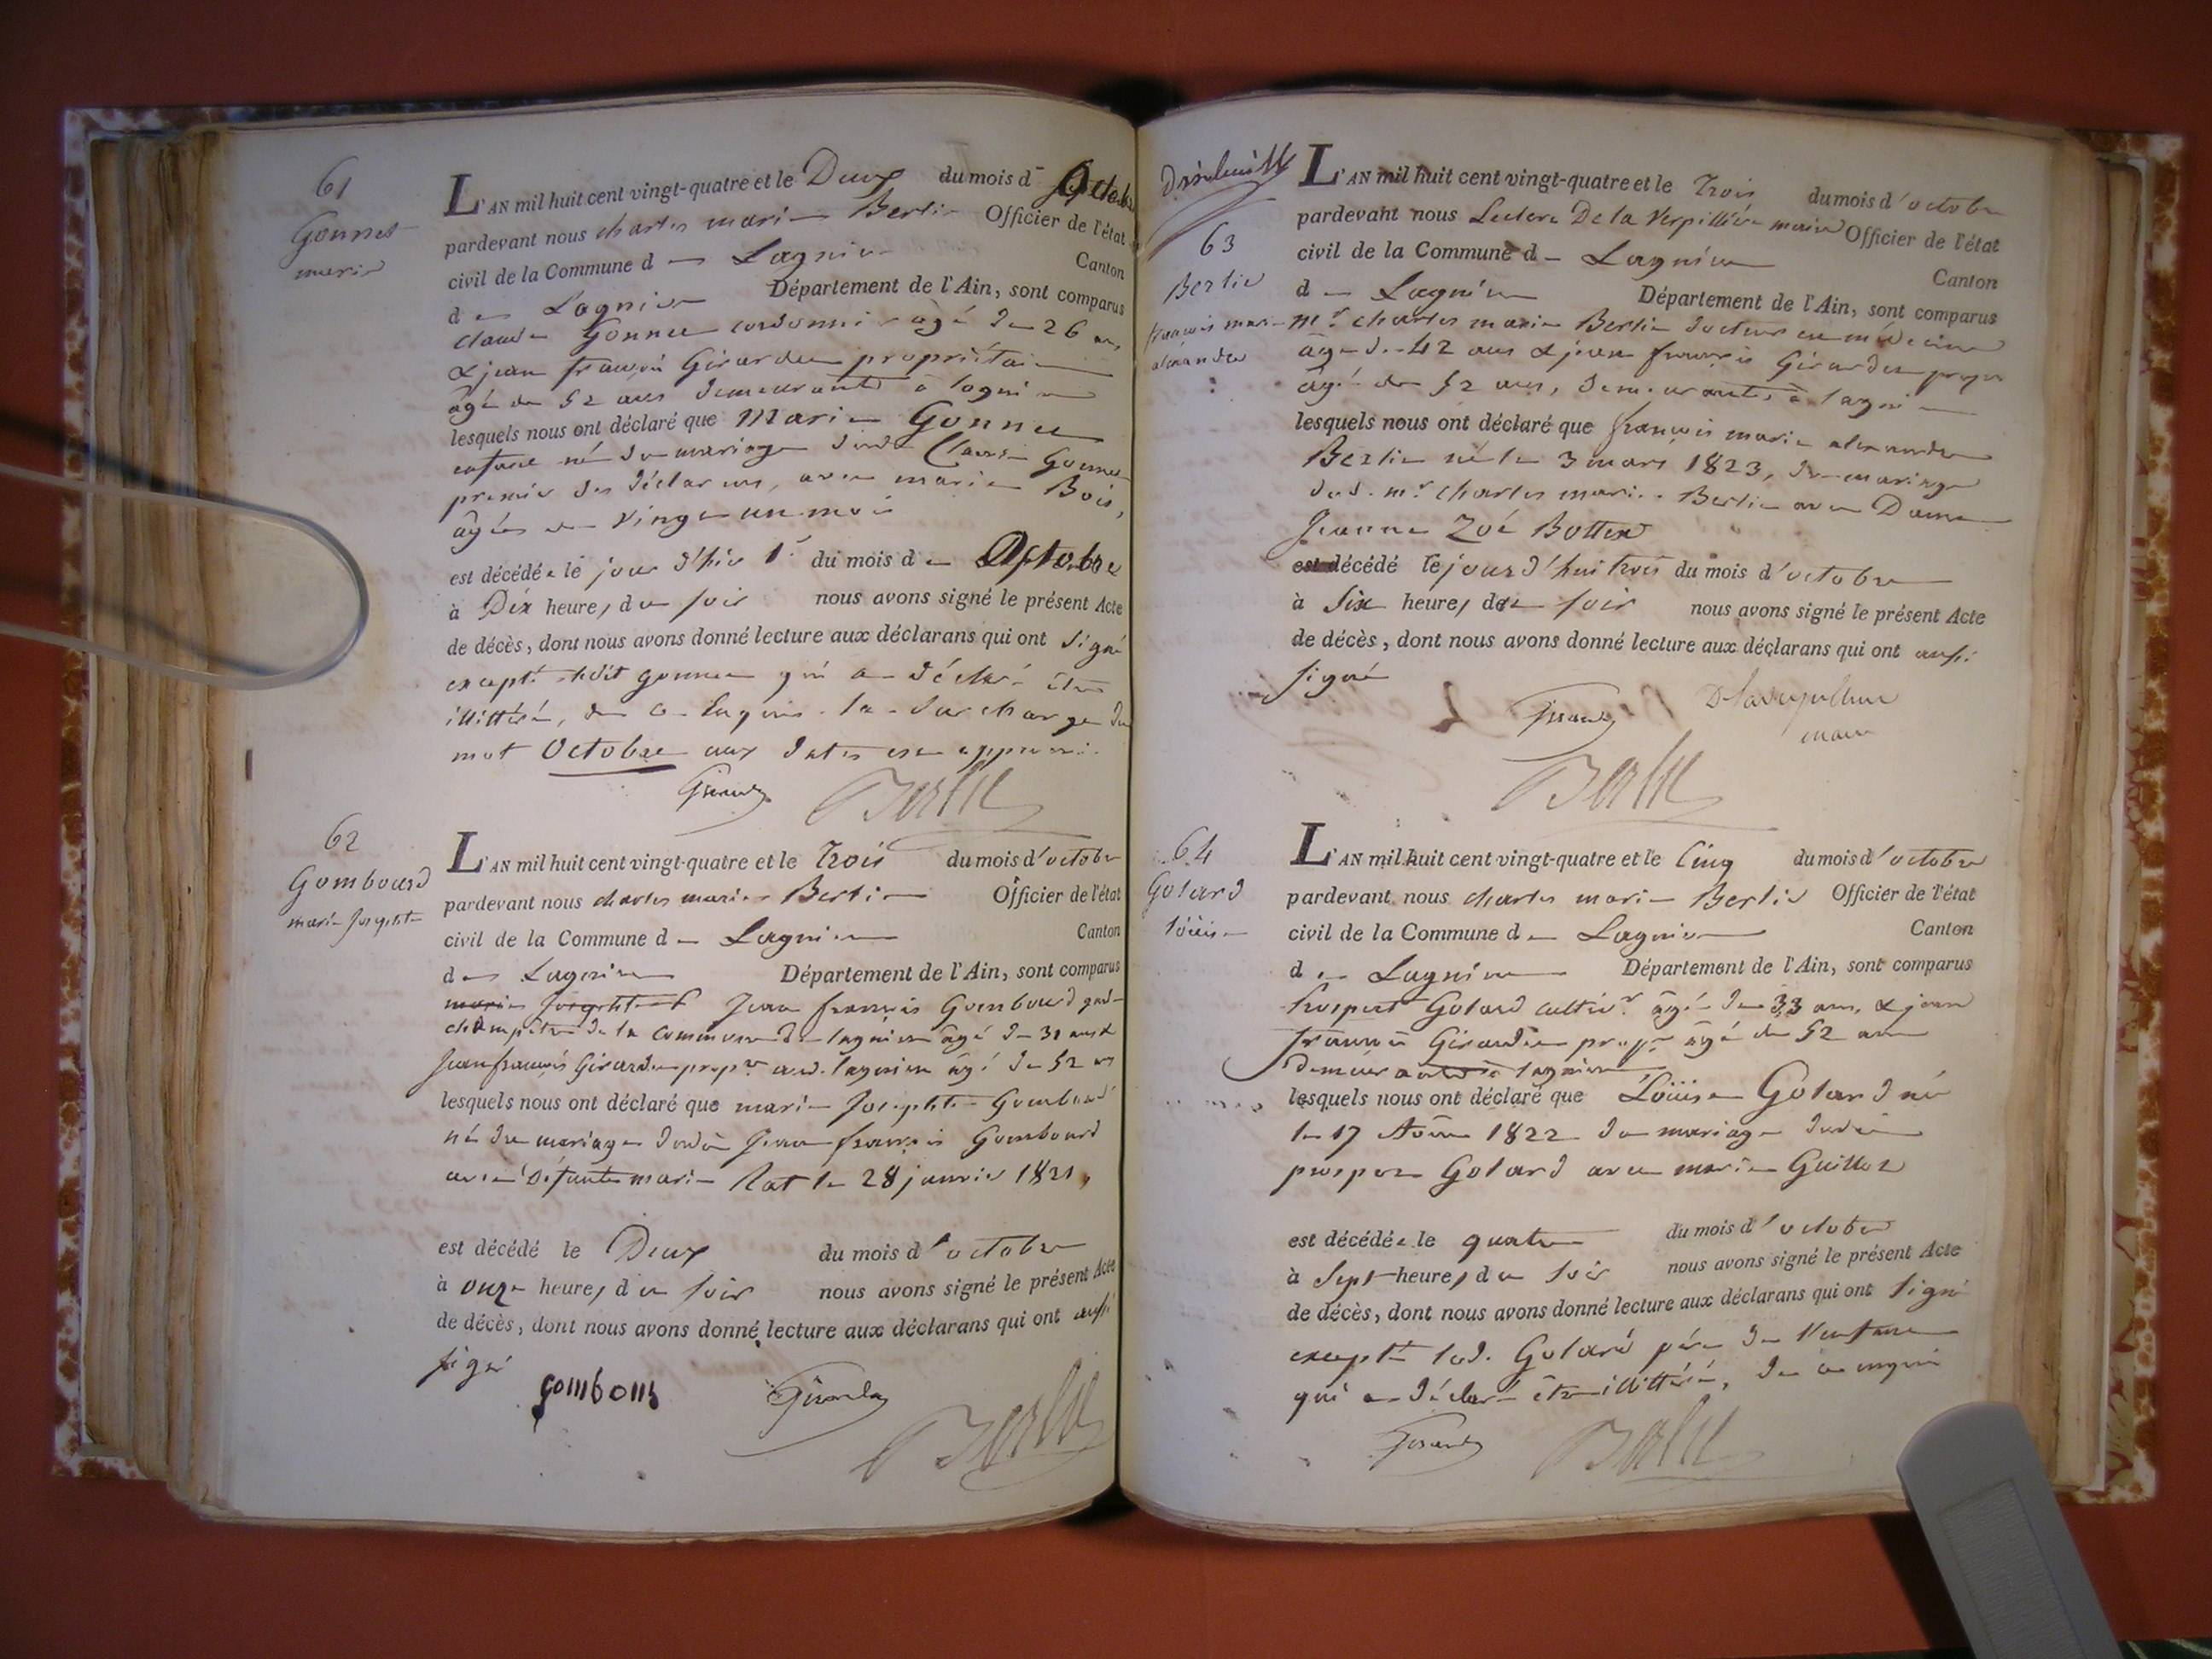 61
Gonnet
marie
L'AN mil huit cent vingt-quatre et le Deux du mois d Octobre
pardevant nous charles marie Berlie Officier de l'état
civil de la Commune d Lagnieu Canton
de Lagnieu Département de l'Ain, sont comparus
claude Gonnet cordonnier âgé de 26 ans
& jean françois Girardin propriétaire
âgé de 52 ans demeurants à lagnieu
lesquels nous ont déclaré que Marie Gonnet
enfant né du mariage dudit Claude Gonnet
premier des déclarans, avec marie Bois,
âgée de vingt un mois
est décédée le jour d'hier 1er du mois de Octobre
à Dix heures du soir nous avons signé le présent Acte
de décès, dont nous avons donné lecture aux déclarans qui ont signé
excepté ledit gonnet qui a déclaré être
illittéré, de ce Enquis. la surcharge du
mot Octobre aux dates est approuvée.
Girardin Berlie
62
Gombourd
marie Josephte
L'AN mil huit cent vingt-quatre et le Trois du mois d'octobre
pardevant nous charles marie Berlie Officier de l'état
civil de la Commune de Lagnieu Canton
de Lagnieu Département de l'Ain, sont comparus
marie Josephte Jean françois Gombourd garde
champêtre de la commune de lagnieu âgé de 31 ans &
Jean françois Girardin propre aud. lagnieu âgé de 52 ans
lesquels nous ont déclaré que marie Josephte Gombourd
né du mariage dudit Jean françois Gombourd
avec défunte marie Rat le 28 janvier 1821,
est décédé le Deux du mois d'octobre
à onze heures du soir nous avons signé le présent Acte
de décès, dont nous avons donné lecture aux déclarans qui ont aussi
signé
gombour Girardin Berlie
63
Berlie
françois marie
alexandre
L'AN mil huit cent vingt-quatre et le Trois du mois d'octobre
pardevant nous Leclerc De la Verpillière maire Officier de l'état
civil de la Commune de Lagnieu
Canton
de Lagnieu Département de l'Ain, sont comparus
mr charles marie Berlie docteur en médecine
âgé de 42 ans & jean françois Girardin propre
âgé de 52 ans, demeurants à lagnieu
lesquels nous ont déclaré que françois marie alexandre
Berlie né le 3 mars 1823, du mariage
dud. mr charles marie Berlie avec Dame
Jeanne Zoé Bottex
est décédé le jour d'hui trois du mois d'octobre
à Six heures du soir nous avons signé le présent Acte
de décès, dont nous avons donné lecture aux déclarans qui ont aussi
signé
Girardin Delaverpilliere
maire
Berlie
64
Golard
Loüise
L'AN mil huit cent vingt-quatre et le Cinq du mois d'octobre
pardevant nous charles marie Berlie Officier de l'état
civil de la Commune de Lagnieu Canton
de Lagnieu Département de l'Ain, sont comparus
Prosper Golard cultivr âgé de 33 ans, & jean
françois Girardin propre âgé de 52 ans
demeurants à lagnieu
lesquels nous ont déclaré que Loüise Golard né
le 17 Août 1822 du mariage dudit
prosper Golard avec marie Guillot
est décédée le quatre du mois d'octobre
à Sept heures du soir nous avons signé le présent Acte
de décès, dont nous avons donné lecture aux déclarans qui ont signé
excepté led. Golard père de l'enfant
qui a déclaré être illittéré, de ce enquis
Girardin Berlie